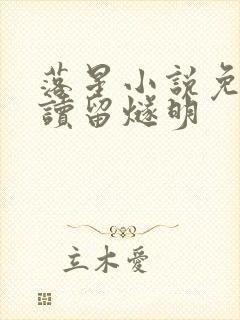 落星小說免
讀留燧明
立木愛